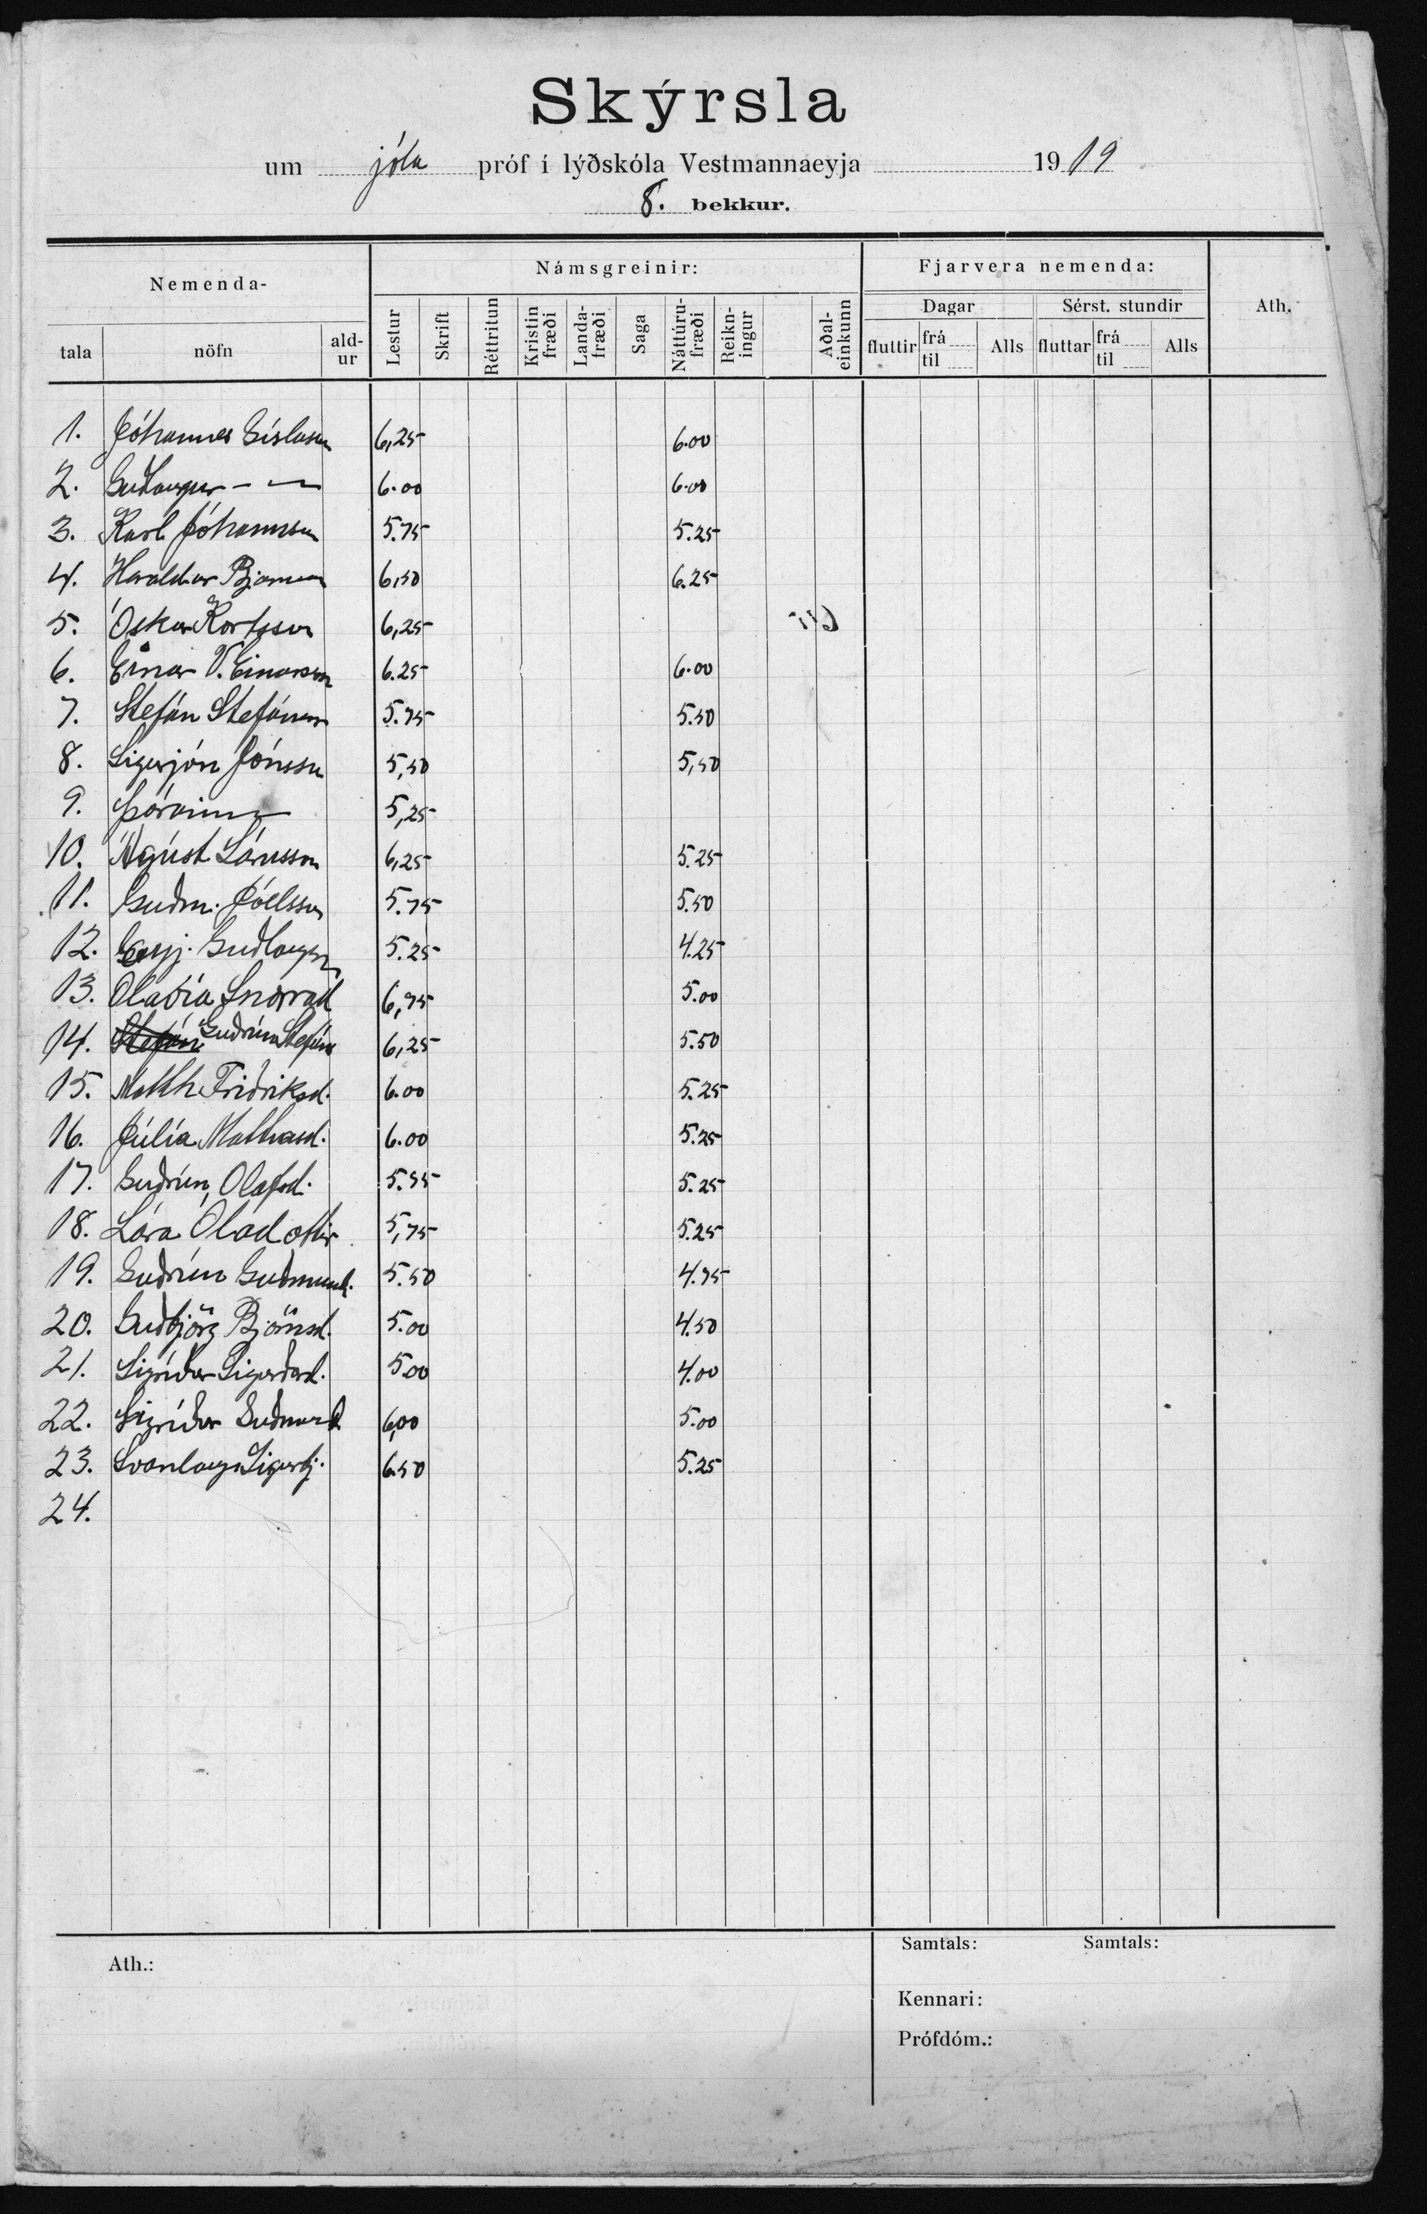 Skýrsla
um jóla próf í lýðskóla Vestmannaeyja 1919
8. bekkur.
Nemenda- Námsgreinir: Fjarvera nemenda: Ath.
Dagar Sérst. stundir
tala nöfn ald-ur Lestur Skrift Réttritun Kristin fræði Landa-fræði Saga Náttúru-fræði Reikn-ingur Aðal-einkunn fluttir frá til Alls fluttar frá til Alls
1. Jóhannes Gíslason 6,25 6.00
2. Guðlaugur — " — 6.00 6.00
3. Karl Jóhannsson 5.75 5.25
4. Haraldur Bjarnason 6,50 6.25
5. Óskar 6,25
6. Einar V. Einarsson 6.25 6.00
7. Stefán Stefánsson 5.75 5.50
8. Sigurjón Jónsson 5,50 5,50
9. Þórarinn — 5,25
10. Ágúst Lárusson 6,25 5.25
11. Guðm. Jóelsson 5.75 5.50
12. Guðlaugss 5.25 4.25
13. Olavía Snorrad 6,75 5.00
14. Stefán Guðrún Stefáns 6,25 5.50
15. Matth Friðriksd. 6.00 5.25
16. Júlía Matthasd. 6.00 5.25
17. Guðrún Olafsd. 5.55 5.25
18. Lára Óladottir 5,75 5.25
19. Guðrún Guðmund. 5.50 4.75
20. Guðbjörg Björnsd. 5.00 4.50
21. Sigríður Sigurðard. 5.00 4.00
22. Sigríður Guðmund 6,00 5.00
23. Svanlaug Sigurbj. 6.50 5.25
24.
Ath.: Samtals: Samtals:
Kennari:
Prófdóm.: